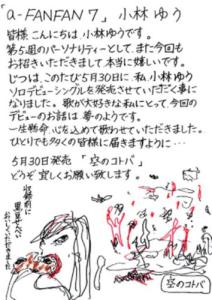 「a-FANFAN7」小林ゆう
皆様こんにちは小林ゆうです。
第5組のパーソナリティーとして、また今回も
お招きいただきまして本当に嬉しいです。
じつは、このたび5月30日に、私、小林ゆう
ソロデビューシングルを発売させていただく事に
なりました。歌が大好きな私にとって、今回の
デビューのお話は夢のようです。
一生懸命、心を込めて歌わせていただきました。
ひとりでも多くの皆様に届きますように…
5月30日発売 「空のコトバ」
どうぞ宜しくお願い致します。
収録前に
おいしくいただきました
空のコトバ